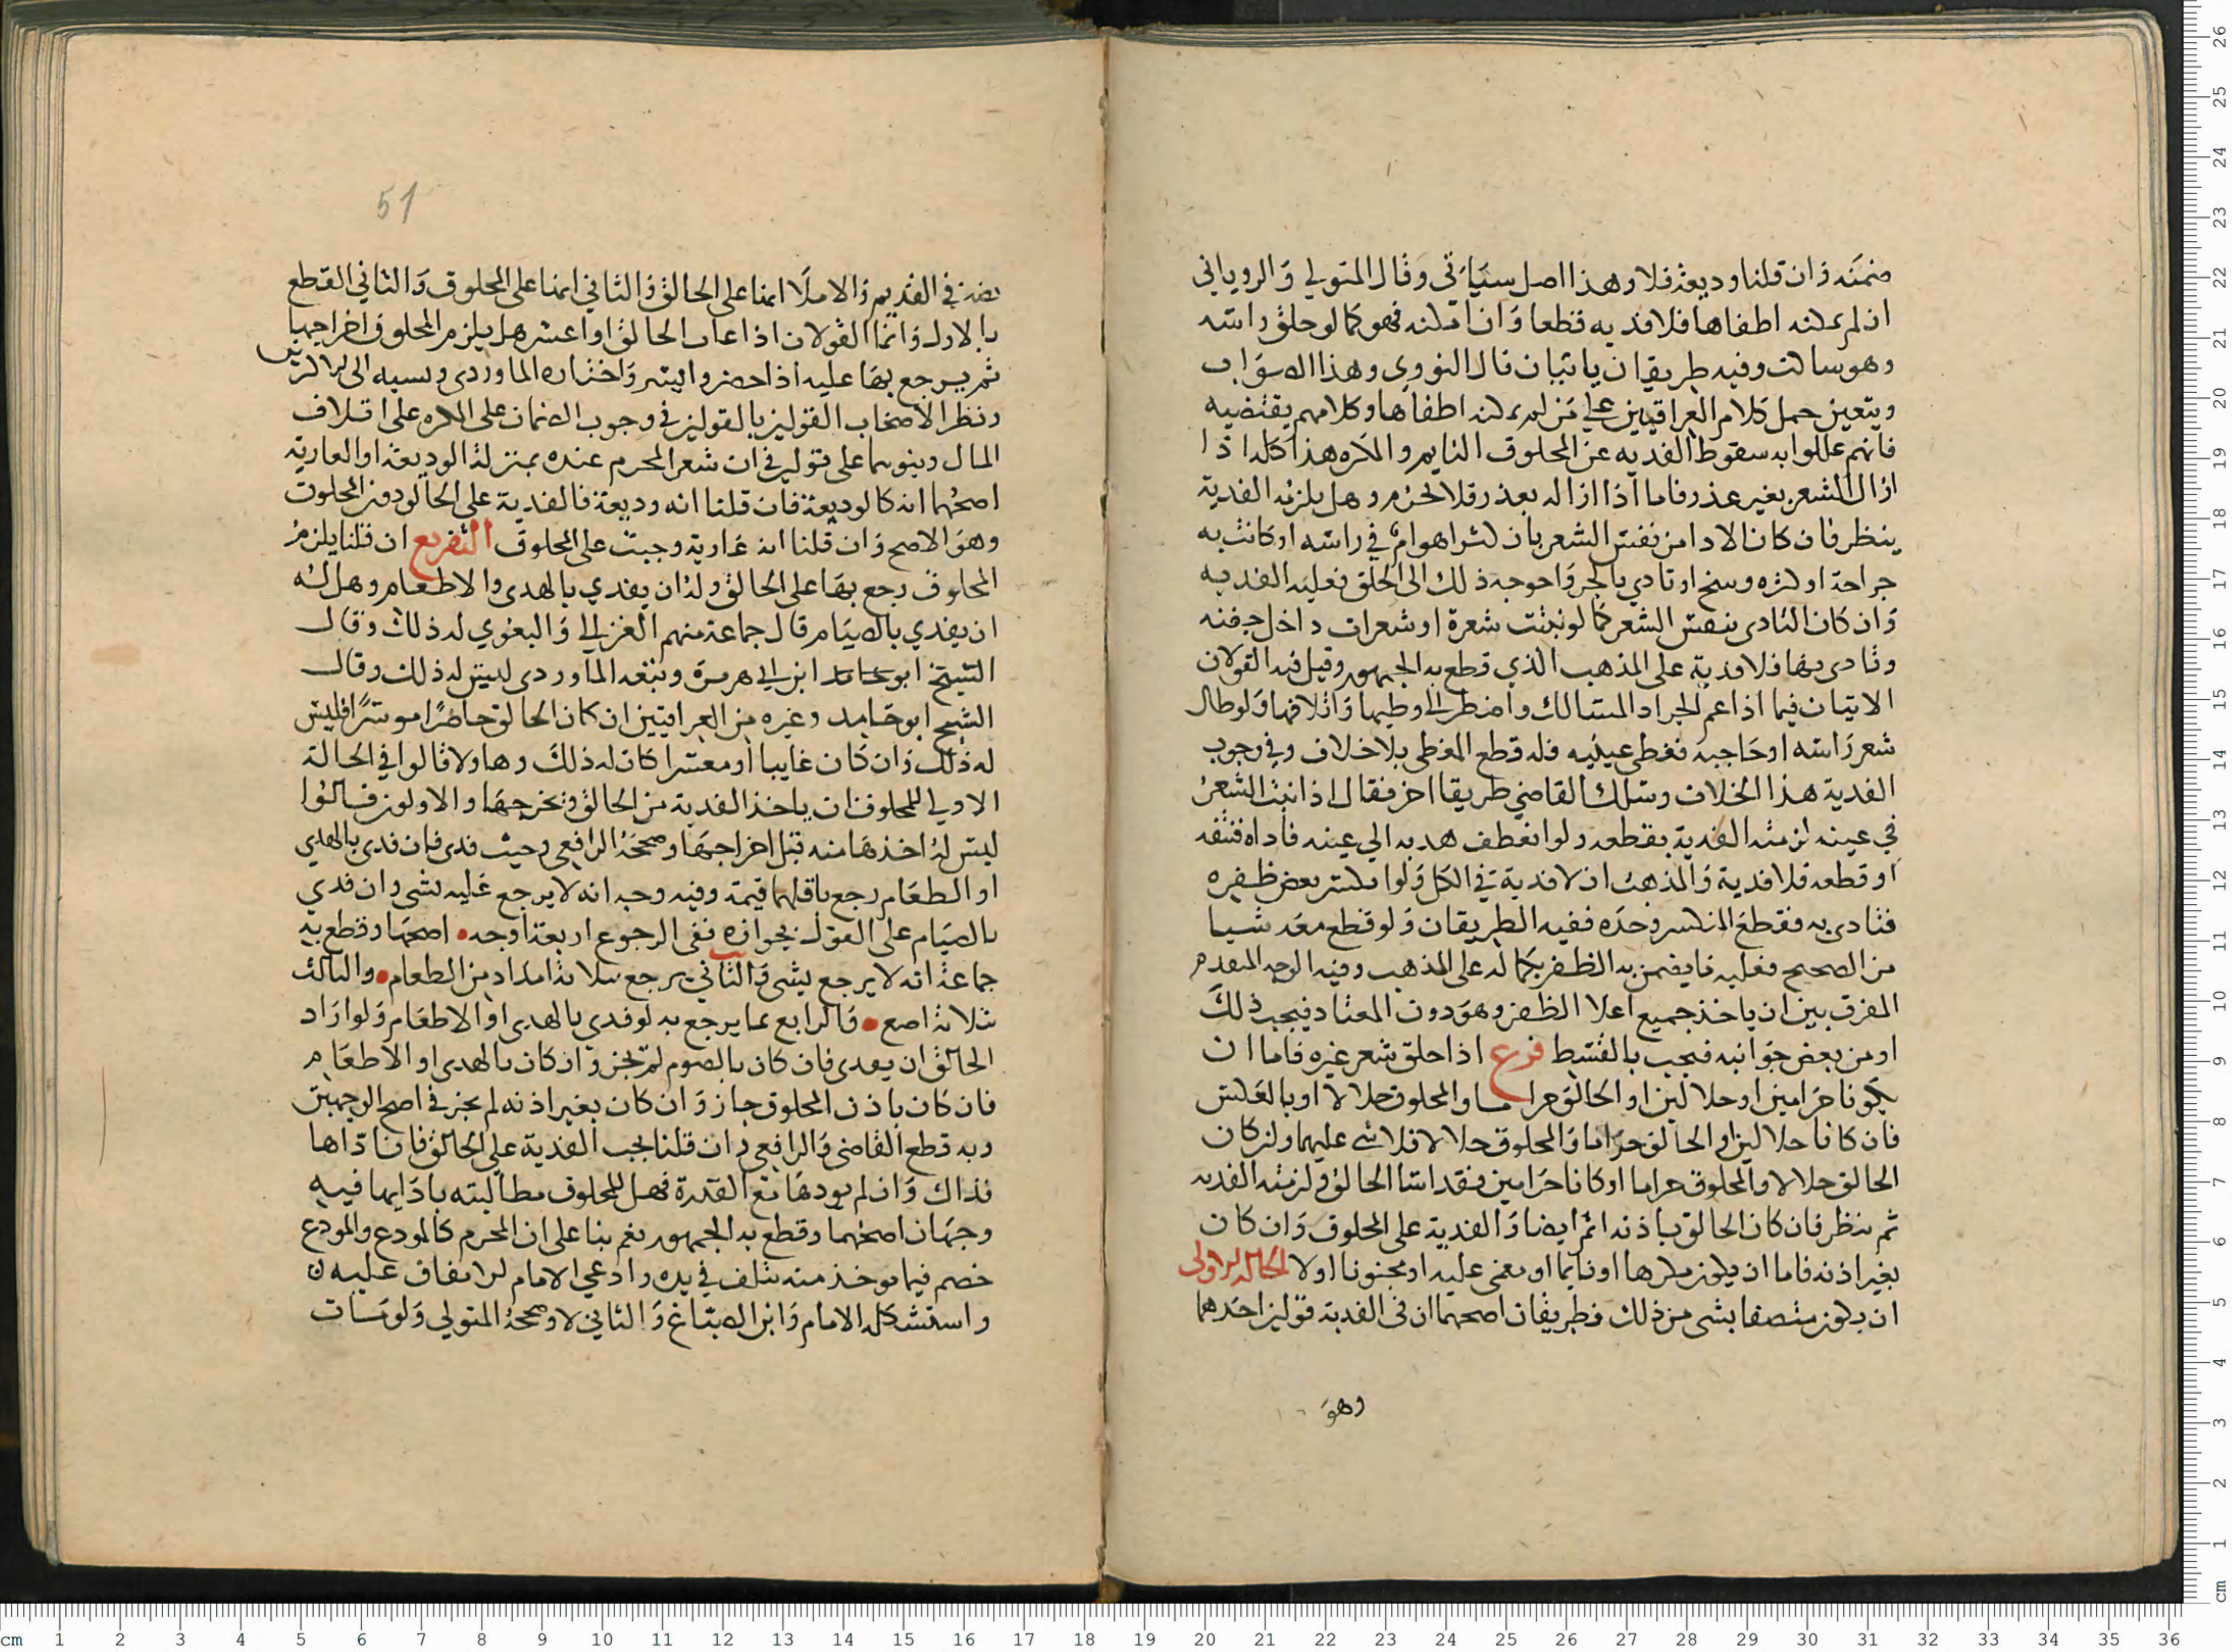 ضمنه وان قلنا وديعة فلا وهذا اصل سياتى وقال المتولي والروياني
ان لم يمكنه اطفاها فلا فديه قطعا وان امكنه فهو كما لو حلق راسه
وهو ساكت وفيه طريقان ياتيان قال النووى وهذا الصواب
ويتعين حمل كلام العراقيين على من لم يمكنه اطفاها وكلامهم يقتضيه
فانهم عللوا به سقوط الفديه عن المحلوق النايم والمكره هذا كله اذا
ازال الشعر بغير عذر فاما اذا ازاله بعذر فلا يحرم وهل يلزمه الفدية
ينظر فان كان الاذا من نفس الشعر بان كثر الهوام في راسه او كانت به
جراحة او كثره وسخ او تاذي بالحر واحوجه ذلك الى الحلق فعليه الفديه
وان كان التاذى بنفس الشعر كما لو نبتت شعرة او شعرات داخل جفنه
وتاذى بها فلا فدية على المذهب الذي قطع به الجمهور وقيل فيه القولان
الاتيان فيما اذا عم الجراد المسالك واضطر الى وطيها واتلافها ولو طال
شعر راسه او حاجبه فغطى عينيه فله قطع المغطى بلا خلاف وفي وجوب
الفدية هذا الخلاف وسلك القاضي طريقا اخر فقال اذا نبت الشعر
في عينه لزمته الفدية بقطعه ولو انعطف هدبه الي عينه فاذاه فنتفه
او قطعه فلا فدية والمذهب ان لا فدية في الكل ولو انكسر بعض ظفره
فتاذى به فقطع المنكسر وحده ففيه الطريقان ولو قطع معه شيا
من الصحيح فعليه ما يضمن به الظفر بكماله على المذهب وفيه الوجه المتقدم
المفرق بين ان ياخذ جميع اعلا الظفر وهو دون المعتاد فيجب ذلك
او من بعض جوانبه فيجب بالقسط فرع اذا حلق شعر غيره فاما ان
يكونا حرامين او حلالين او الحالق حراما والمحلوق حلالا او بالعكس
فان كانا حلالين او الحالق حراما والمحلوق حلالا فلا شى عليهما وان كان
الحالق حلالا والمحلوق حراما او كانا حرامين فقد اسا الحالق ولزمته الفديه
ثم ينظر فان كان الحالق باذنه اثم ايضا والفدية على المحلوق وان كان
بغير اذنه فاما ان يكون مكرها او نايما او مغمى عليه او مجنونا او لا الحاله الاولى
ان يكون متصفا بشى من ذلك فطريقان اصحهما ان فى الفدية قولين احدهما
وهو
51
نصه في القديم والاملا انها على الحالق والثاني انها على المحلوق والثاني القطع
بالاول وانما القولان اذا غاب الحالق او اعسر هل يلزم المحلوق اخراجها
ثم يرجع بها عليه اذا حضر وايسر واختاره الماوردى ونسبه الى الاكثرين
ونظر الاصحاب القولين بالقولين في وجوب الضمان على المكره على اتلاف
المال وبنوهما على قولين في ان شعر المحرم عنده بمنزلة الوديعة او العارية
اصحهما انه كالوديعة فان قلنا انه وديعة فالفدية على الحالق دون المحلوق
وهو الاصح وان قلنا انه عارية وجبت على المحلوق التفريع ان قلنا يلزم
المحلوق رجع بها على الحالق وله ان يفدي بالهدى والاطعام وهل له
ان يفدي بالصيام قال جماعة منهم الغزالي والبغوي له ذلك وقال
الشيخ ابو حامد ابن ابي هريرة وتبعه الماوردى ليس له ذلك وقال
الشيخ ابو حامد وغيره من العراقيين ان كان الحالق حاضرا موسرا فليس
له ذلك وان كان غايبا او معسرا كان له ذلك وهاولا قالوا في الحالة
الاولي للمحلوق ان ياخذ الفدية من الحالق ويخرجها والاولون قالوا
ليس له اخذها منه قبل اخراجها وصححه الرافعي وحيث فدى فان فدى بالهدي
او الطعام رجع باقلهما قيمة وفيه وجه انه لا يرجع عليه بشى وان فدي
بالصيام على القول بجوازه ففى الرجوع اربعة اوجه اصحها وقطع به
جماعة انه لا يرجع بشى والثاني يرجع بثلاثة امداد من الطعام والثالث
بثلاثة اصع والرابع بما يرجع به لو فدي بالهدى او الاطعام ولو اراد
الحالق ان يفدى فان كان بالصوم لم يجز وان كان بالهدى او الاطعام
فان كان باذن المحلوق جاز وان كان بغير اذنه لم يجز في اصح الوجهين
وبه قطع القاضي والرافعي وان قلنا تجب الفدية على الحالق فان اداها
فذاك وان لم يودها مع القدرة فهل للمحلوق مطالبته بادايها فيه
وجهان اصحهما وقطع به الجمهور نعم بنا على ان المحرم كالمودع والمودع
خصم فيما يوخذ منه يتلف في يده وادعي الامام الاتفاق عليه ن
واستشكله الامام وابن الصباغ والثاني لا وصححه المتولي ولو مات